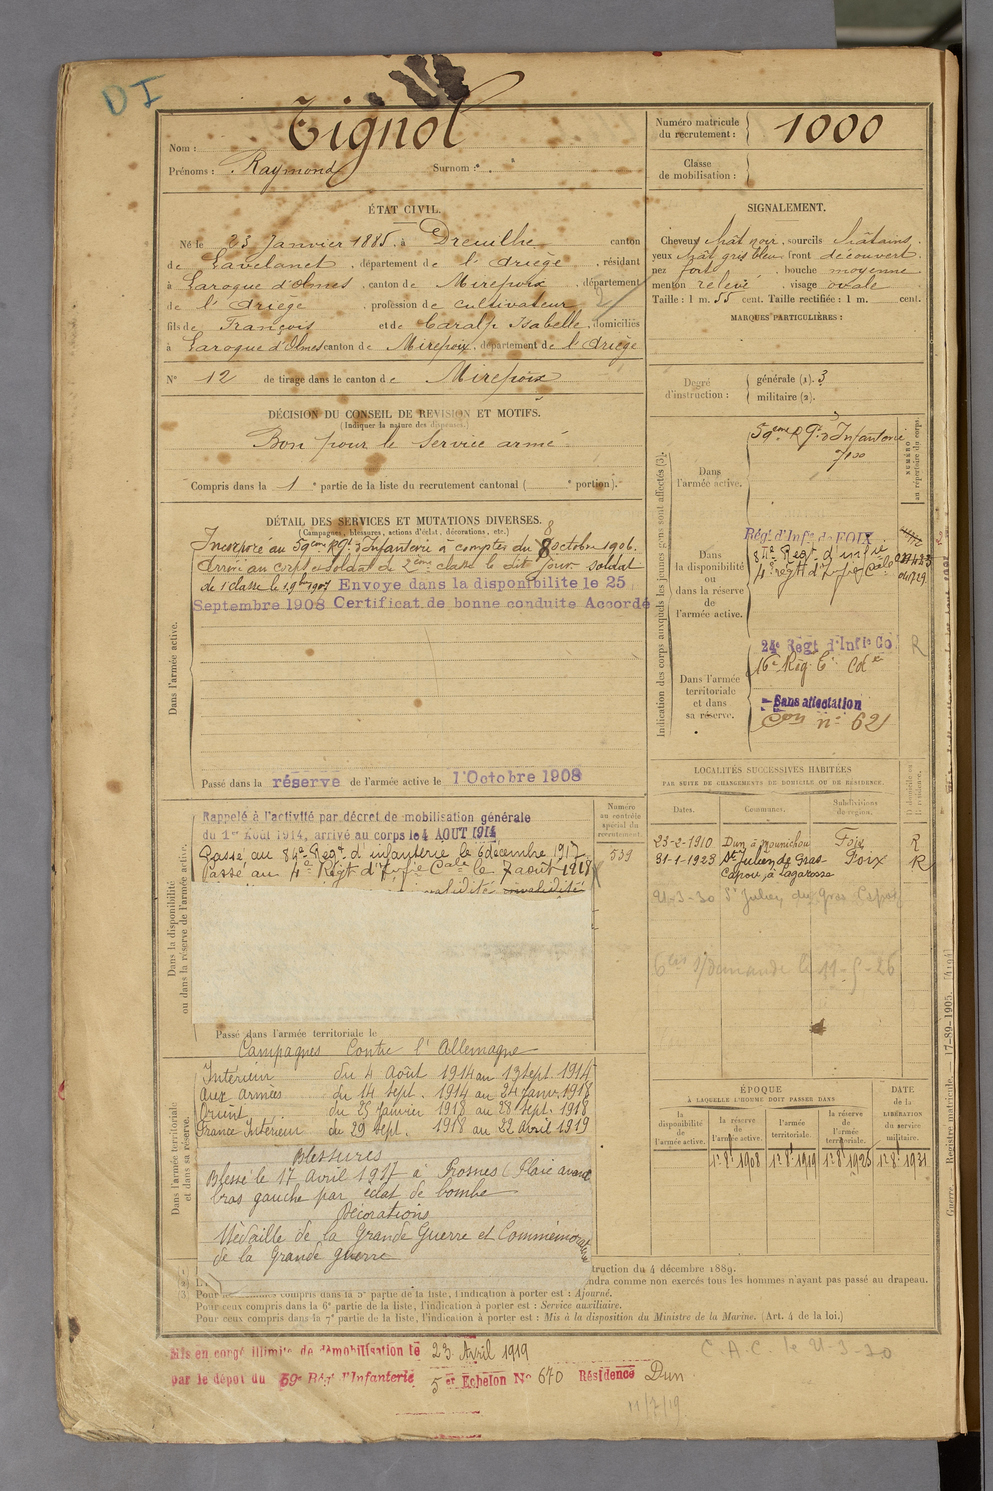 DI
Nom : Tignol
Prénoms : Raymond Surnom :
Numéro matricule du recrutement : 1000
Classe de mobilisation :
ÉTAT CIVIL.
Né le 23 Janvier 1885, à Dreuilhe canton
de Lavelanet, département de l'Ariège, résidant
à Laroque d'Olmes, canton de Mirepoix, département
de l'Ariège, profession de cultivateur
fils de François et de Caralp Isabelle, domiciliés
à Laroque d'Olmes canton de Mirepoix, département de l'Ariège
N° 12 de tirage dans le canton de Mirepoix
SIGNALEMENT.
Cheveux chât noir, sourcils châtains
yeux chât gris bleu, front découvert
nez fort, bouche moyenne
menton relevé, visage ovale
Taille : 1 m. 55 cent. Taille rectifiée : 1 m. cent.
MARQUES PARTICULIÈRES :
Degré d'instruction : générale (1). 3
militaire (2).
DÉCISION DU CONSEIL DE REVISION ET MOTIFS.
(Indiquer la nature des dispenses.)
Bon pour le service armé
Compris dans la 1e partie de la liste du recrutement cantonal ( e portion).
DÉTAIL DES SERVICES ET MUTATIONS DIVERSES.
(Campagnes, blessures, actions d'éclat, décorations, etc.)
Incorporé au 59ème Rgt d'Infanterie à compter du 8 octobre 1906.
Arrivé au corps et soldat de 2ème classe le dit jour. soldat
de 1 classe le 1. 9bre 1907 Envoye dans la disponibilite le 25
Septembre 1908 Certificat de bonne conduite Accordé
Dans l'armée active.
Passé dans la réserve de l'armée active le 1 Octobre 1908
Indication des corps auxquels les jeunes gens sont affectés (3).
NUMÉRO au répertoire du corps.
Dans l'armée active.
59eme Rgt d'Infanterie
Dans la disponibilité ou dans la réserve de l'armée active.
Régt d'Infie de FOIX
84e Regt d'infie
4e régtt d'Infie Cale
Dans l'armée territoriale et dans sa réserve.
24e Regt d'Infie Co R
16e Rég.
Sans affectation
Con n° 62
Dans la disponibilité ou dans la réserve de l'armée active.
Numéro au contrôle spécial du recrutement.
539
Rappelé à l'activité par décret de mobilisation générale
du 1er Août 1914, arrivé au corps le 4 AOUT 1914
Passé au 84e Regt d'infanterie le 6 décembre 1917
Passé au 4e Régt d'Infie Cale le 7 août 1918
Passé dans l'armée territoriale le
LOCALITÉS SUCCESSIVES HABITÉES
PAR SUITE DE CHANGEMENTS DE DOMICILE OU DE RÉSIDENCE.
Dates. Communes. Subdivisions de région. D. domicile ou R. résidence.
23-2-1910 Dun à Mounichou Foix R
31-1-1923 St Julien de Gras- Foix R
Capou, à Lagarosse
21-3-30 St Julien de Gras Capou
Campagnes Contre l'Allemagne
Intérieur du 4 Août 1914 au 13 sept. 1914
Aux Armées du 14 sept. 1914 au 24 Janv. 1918
Orient du 25 Janvier 1918 au 28 sept. 1918
France Intérieur du 29 sept. 1918 au 22 avril 1919
Dans l'armée territoriale et dans sa réserve.
Blessures
Blessé le 17 Avril 1917 à Prosnes (Plaie avant
bras gauche par éclat de bombe
Décorations
Médaille de la Grande Guerre et Commémorative
de la Grande guerre
ÉPOQUE
À LAQUELLE L'HOMME DOIT PASSER DANS
DATE de la LIBÉRATION du service militaire.
la disponibilité de l'armée active. la réserve de l'armée active. l'armée territoriale. la réserve de l'armée territoriale.
1er 8bre 1908 1er 8bre 1919 1er 8bre 1925 1er 8bre 1931
truction du 4 décembre 1889.
ndra comme non exercés tous les hommes n'ayant pas passé au drapeau.
(3) Pour compris dans la 5e partie de la liste, l'indication à porter est : Ajourné.
Pour ceux compris dans la 6e partie de la liste, l'indication à porter est : Service auxiliaire.
Pour ceux compris dans la 7e partie de la liste, l'indication à porter est : Mis à la disposition du Ministre de la Marine. (Art. 4 de la loi.)
Guerre. — Registre matricule. — 17-89-1905. [4194]
Mis en congé illimité de démobilisation le 23 Avril 1919
par le dépot du 59e Régt d'Infanterie 5 er Echelon No 670 Résidence Dun
C.A.C. le 21-3-30
11/7/19